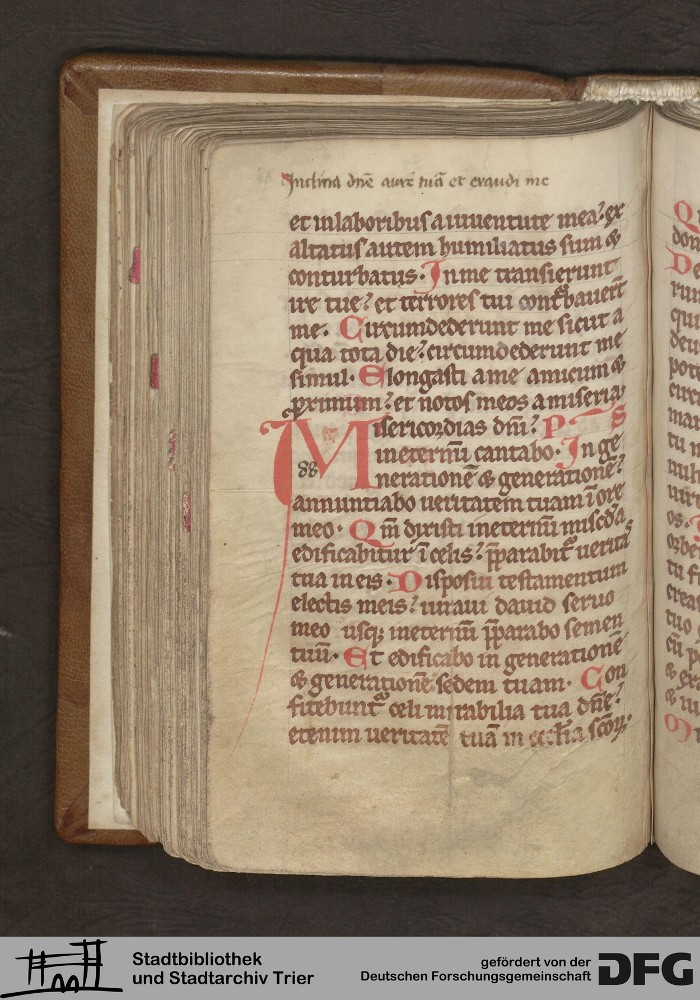 Inclina dn̄e aurē tuā et exaudi me
et in laboribus a iuuentute mea? ex
altatus autem humiliatus sum &
conturbatus. In me transierunt
ire tue? et terrores tui contᵃbauert̄
me. Circumdederunt me sicut a
qua tota die? circumdederunt me
simul. Elongasti a me amicum &
ꝓximum? et notos meos a miseria.
Misericordias dn̄i? P S
in eternū cantabo. In ge
88
neratione & generationē?
annuntiabo ueritatem tuam ī ore
meo. Qm̄ dixisti in eternū miscd̄a
edificabitur ī celis? p̄parabit᷑ ueritas
tua in eis. Disposui testamentum
electis meis? iuraui dauid seruo
meo usqꝫ in eternū p̄parabo semen
tuū. Et edificabo in generationē
& generationē sedem tuam. Con
fitebunt᷑ celi mirabilia tua dn̄e?
etenim ueritatē tuā in eccl̄ia scōꝝ.
Stadtbibliothek
und Stadtarchiv Trier
gefördert von der
Deutschen Forschungsgemeinschaft
DFG